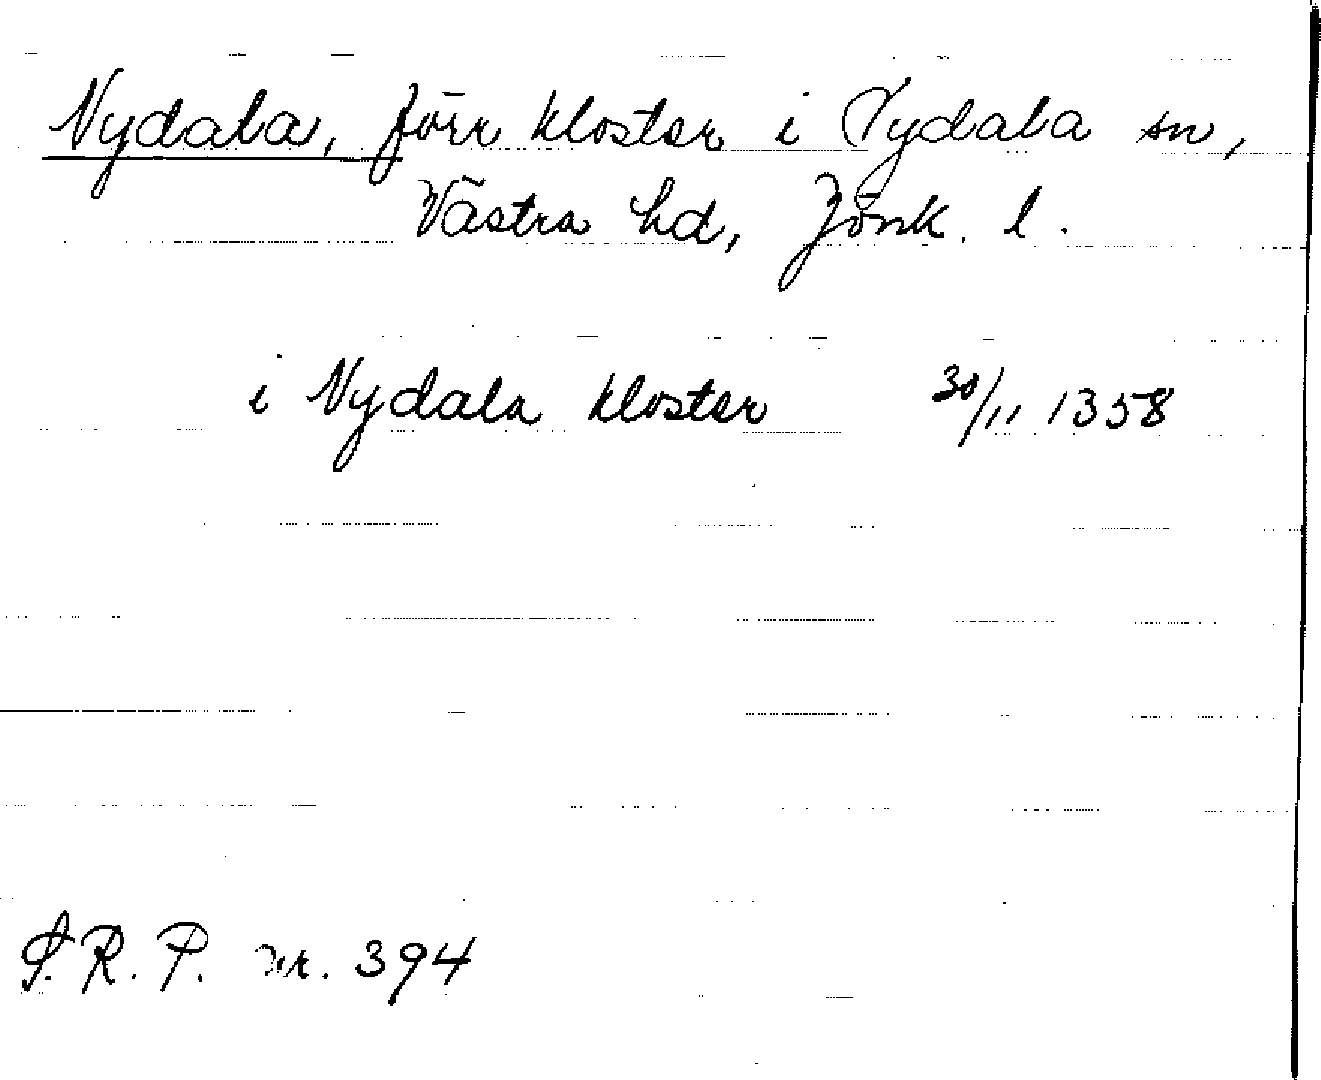 Nydala, förr kloster i Nydala sn,
Västra hd, Jönk. l.
i Nydala kloster 30/11 1358
S.R.P. nr. 394